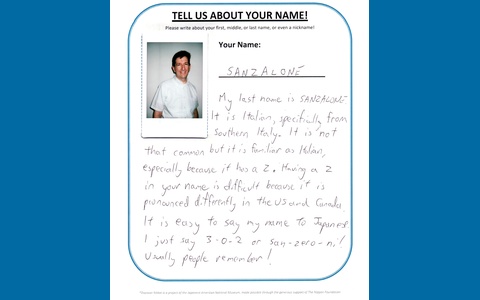 TELL US ABOUT YOUR NAME!
Please write about your first, middle, or last name, or even a nickname!
Your Name:
SANZALONE
My last name is SANZALONE
It is Italian, specifically from
Southern Italy. It is not
that common but it is familiar as Italian,
especially because it has a Z. Having a Z
in your name is difficult because it is
pronounced differently in the US and Canada.
It is easy to say my name to Japanese
I just say 3-0-2 or san-zero-ni!
Usually people remember!